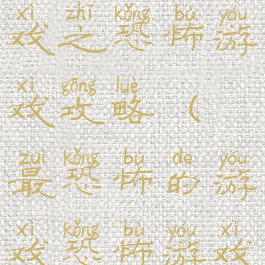 xì zhī kǒng bù yóu
戏之恐怖游
xì gōng lüè
戏攻略(
zuì kǒng bù de yóu
最恐怖的游
xì kǒng bù yóu xì
戏恐怖游戏